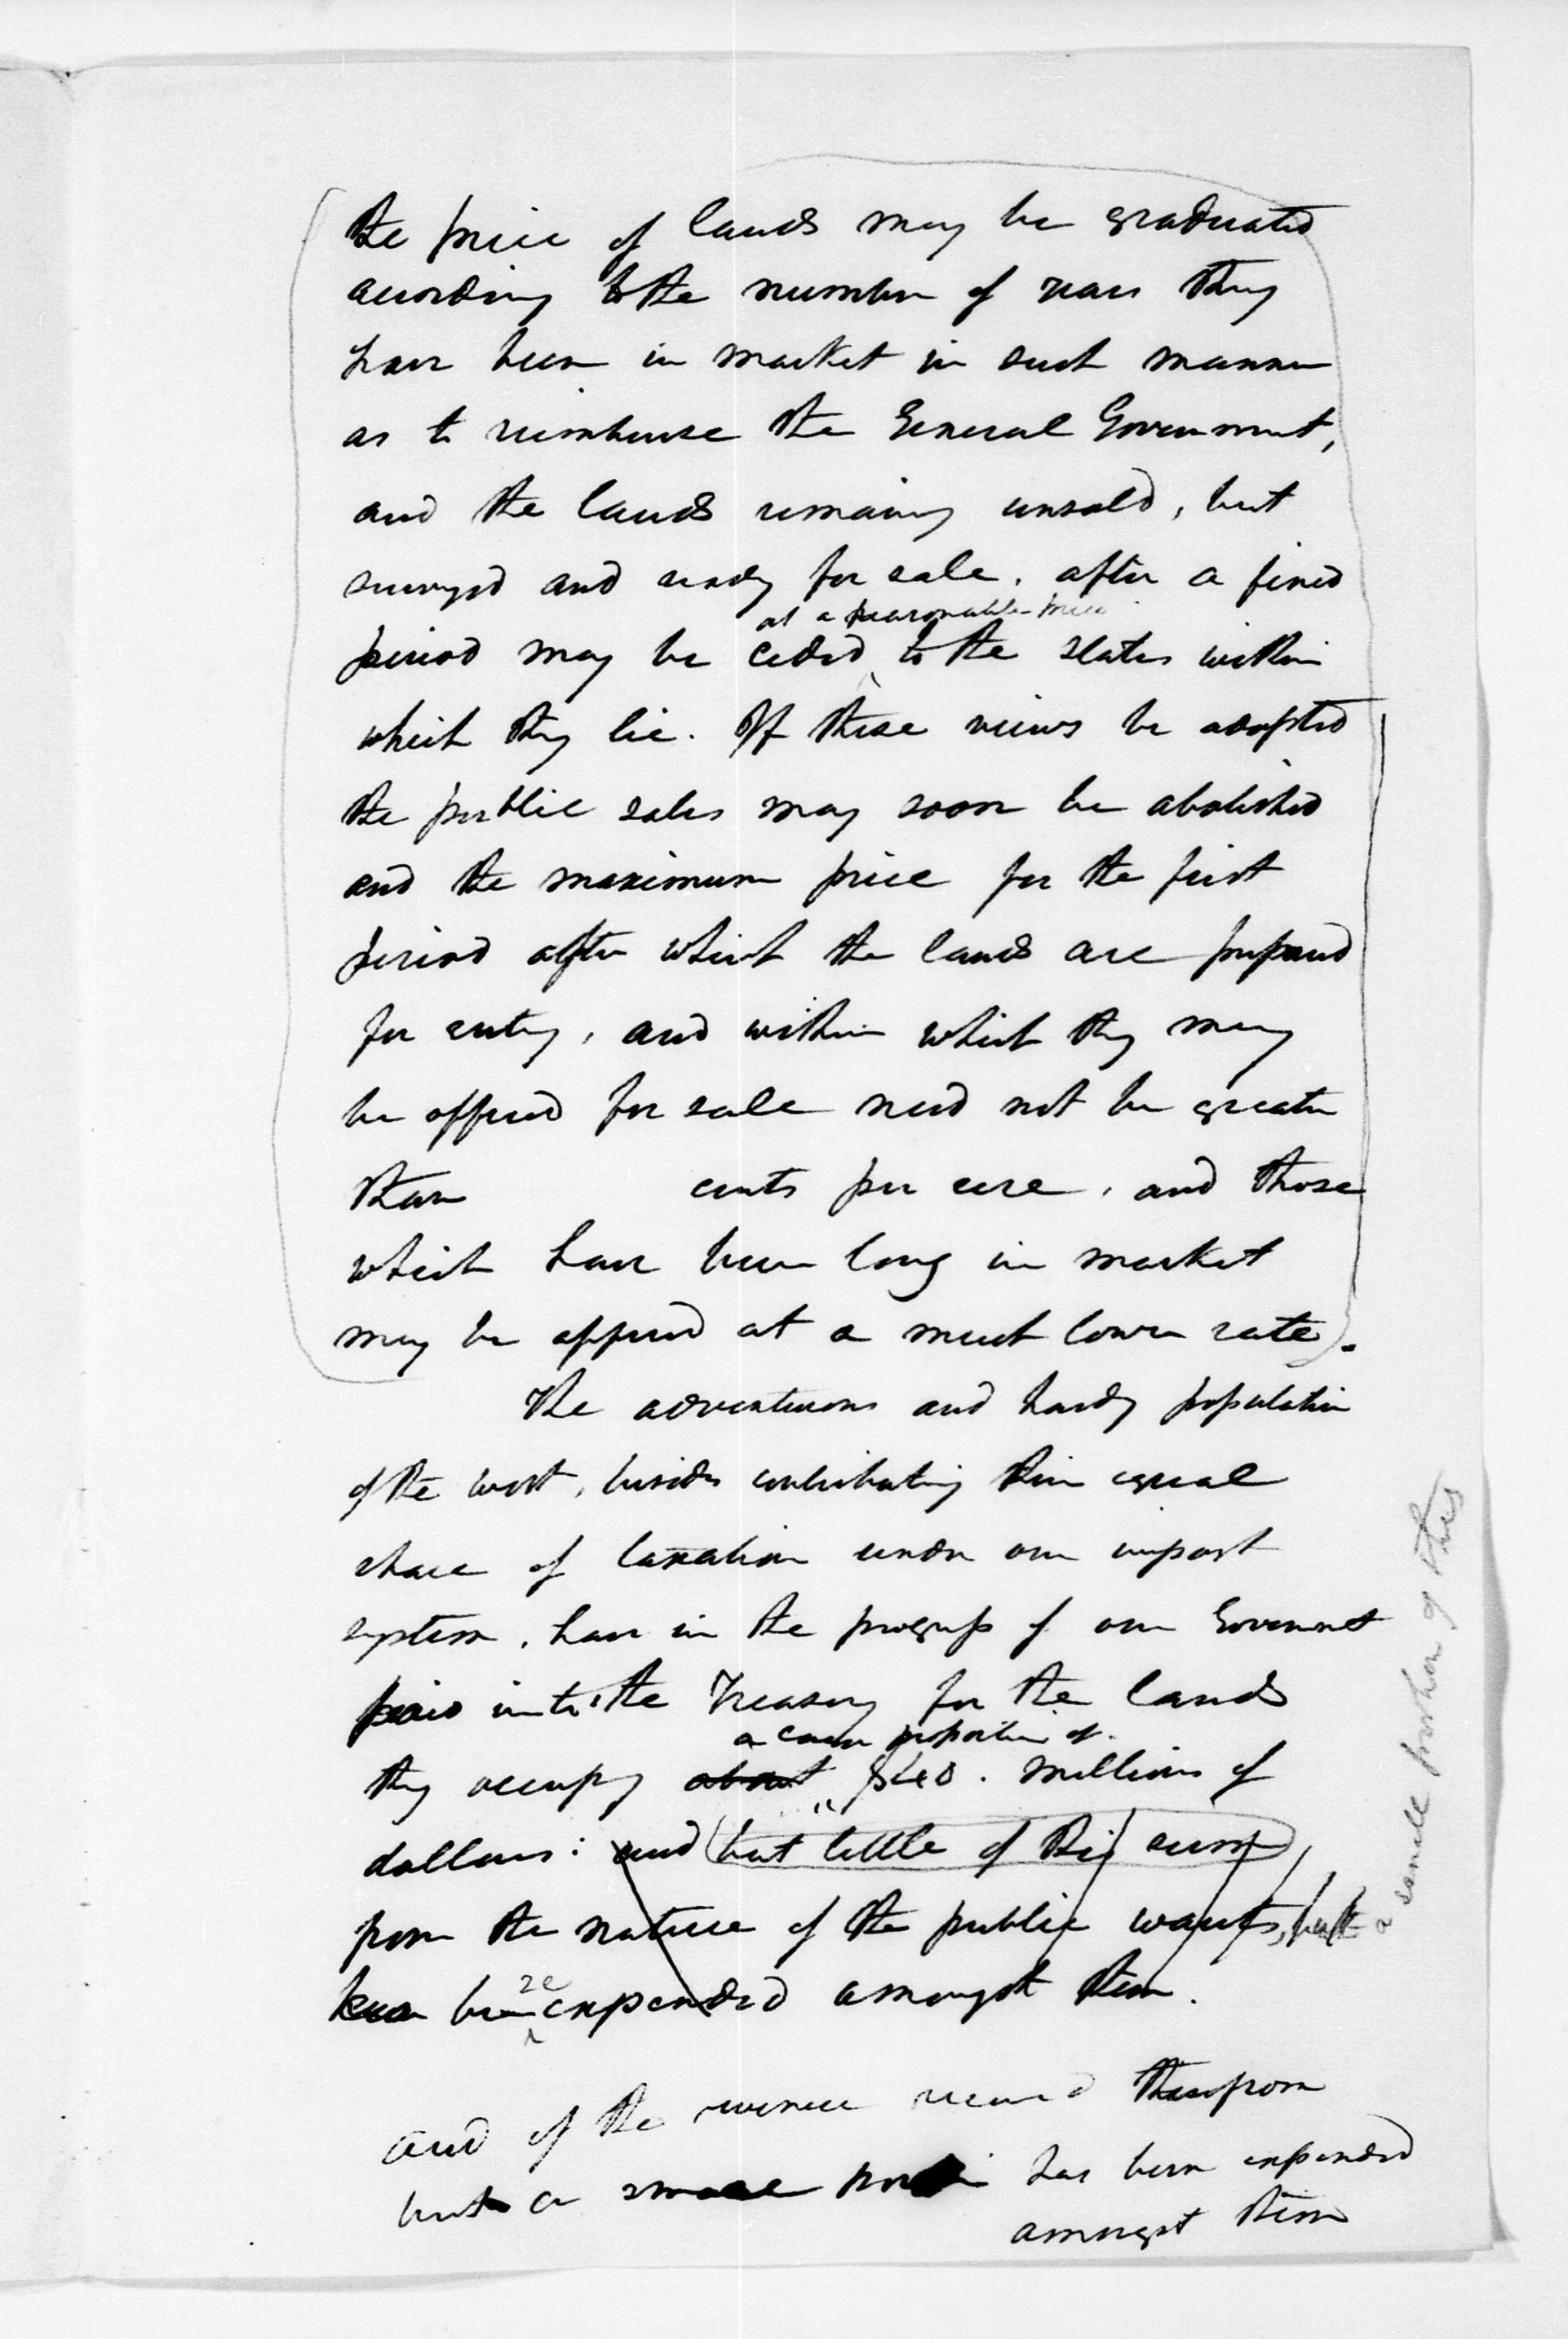 the price of lands may be graduated
according to the number of years they
have been in market in such manner
as to reimburse the General Government,
and the lands remaining unsold, but
surveyed and ready for sale, after a fixed
at a reasonable price
period may be ceded to the states within
which they lie. If these views be adopted
the public sales may soon be abolished
and the maximum price for the first
period after which the lands are prepared
for entry, and within which they may
be offered for sale need not be greater
than cents per acre, and those
which have been long in market
may be offered at a much lower rate).
The adventurous and hardy population
of the west, besides contributing their equal
share of taxation under our impost
system, have in the progress of our Government
paid into the Treasury for the lands
a proportion of
they occupy about $40. millions of
dollars: and (but little of this sum)
from the nature of the public wants,
been expended amongst them.
a small portion of this
and of the revenue received therefrom
but a small has been expended
amongst them